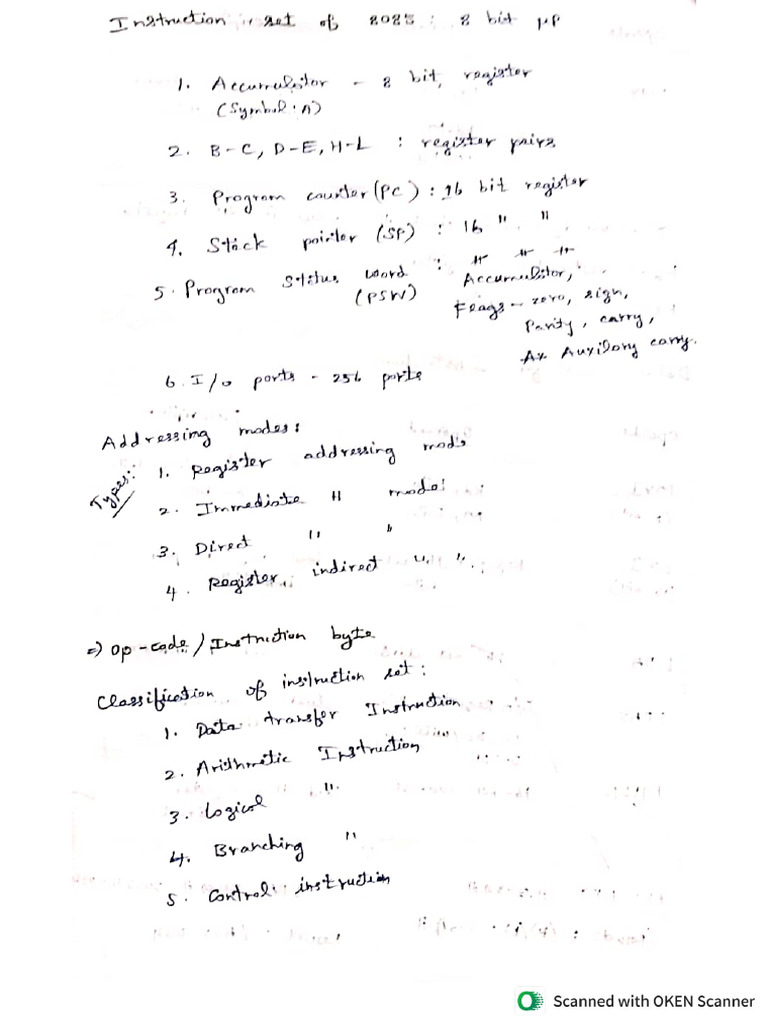 Instruction set of 8085 : 8 bit μp
1. Accumulator - 8 bit, register
(Symbol. A)
2. B-C, D-E, H-L : register pairs
3. Program counter (PC) : 16 bit register
4. Stack pointer (SP) : 16 " "
5. Program status word : " " "
(PSW) Accumulator,
Flags - zero, sign,
Parity, carry,
Ax Auxilary carry.
6. I/o ports - 256 ports
Addressing modes:
Types:
1. Register addressing mode
2. Immediate " mode
3. Direct " "
4. Register indirect " ".
=) Op-code / Instruction byte
Classification of instruction set :
1. Data transfer Instruction
2. Arithmetic Instruction
3. Logical "
4. Branching "
5. Control instruction
Scanned with OKEN Scanner